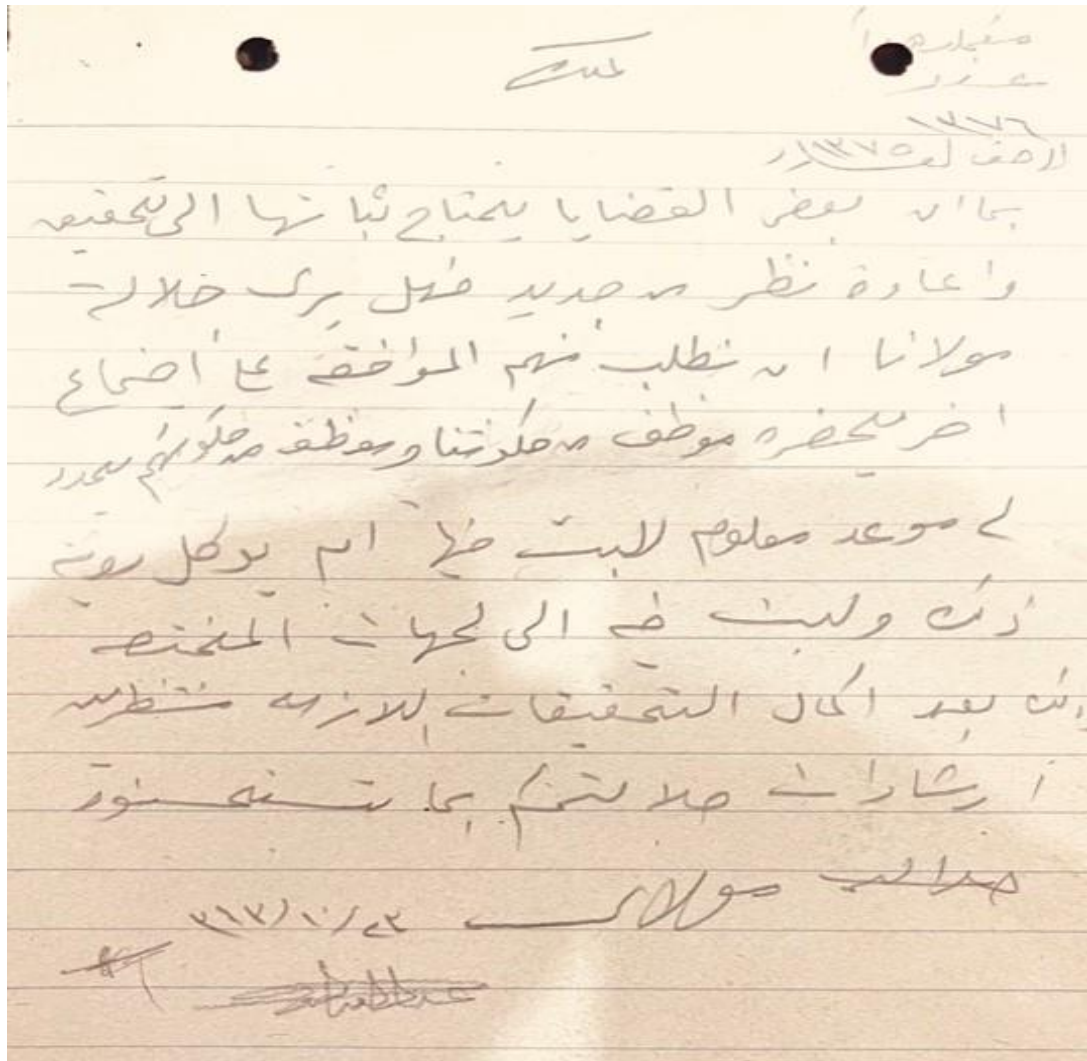 ١٣٧٦
بما ان بعض القضايا يحتاج ثباتها الى تحقيق
واعادة نظر من جديد فهل يرى جلالة
مولانا ان نطلب منهم الموافقة على اجتماع
اخر يحضره موظف من حكومتنا وموظف من حكومتهم يحدد
له موعد معلوم للبت فيها ام يوكل روية
ذلك ولبت فيه الى لجهات المختصه
وذلك بعد اكمال التحقيقات اللازمه منتظرين
ارشادات جلالتكم بما تستحسنونه
مولاي